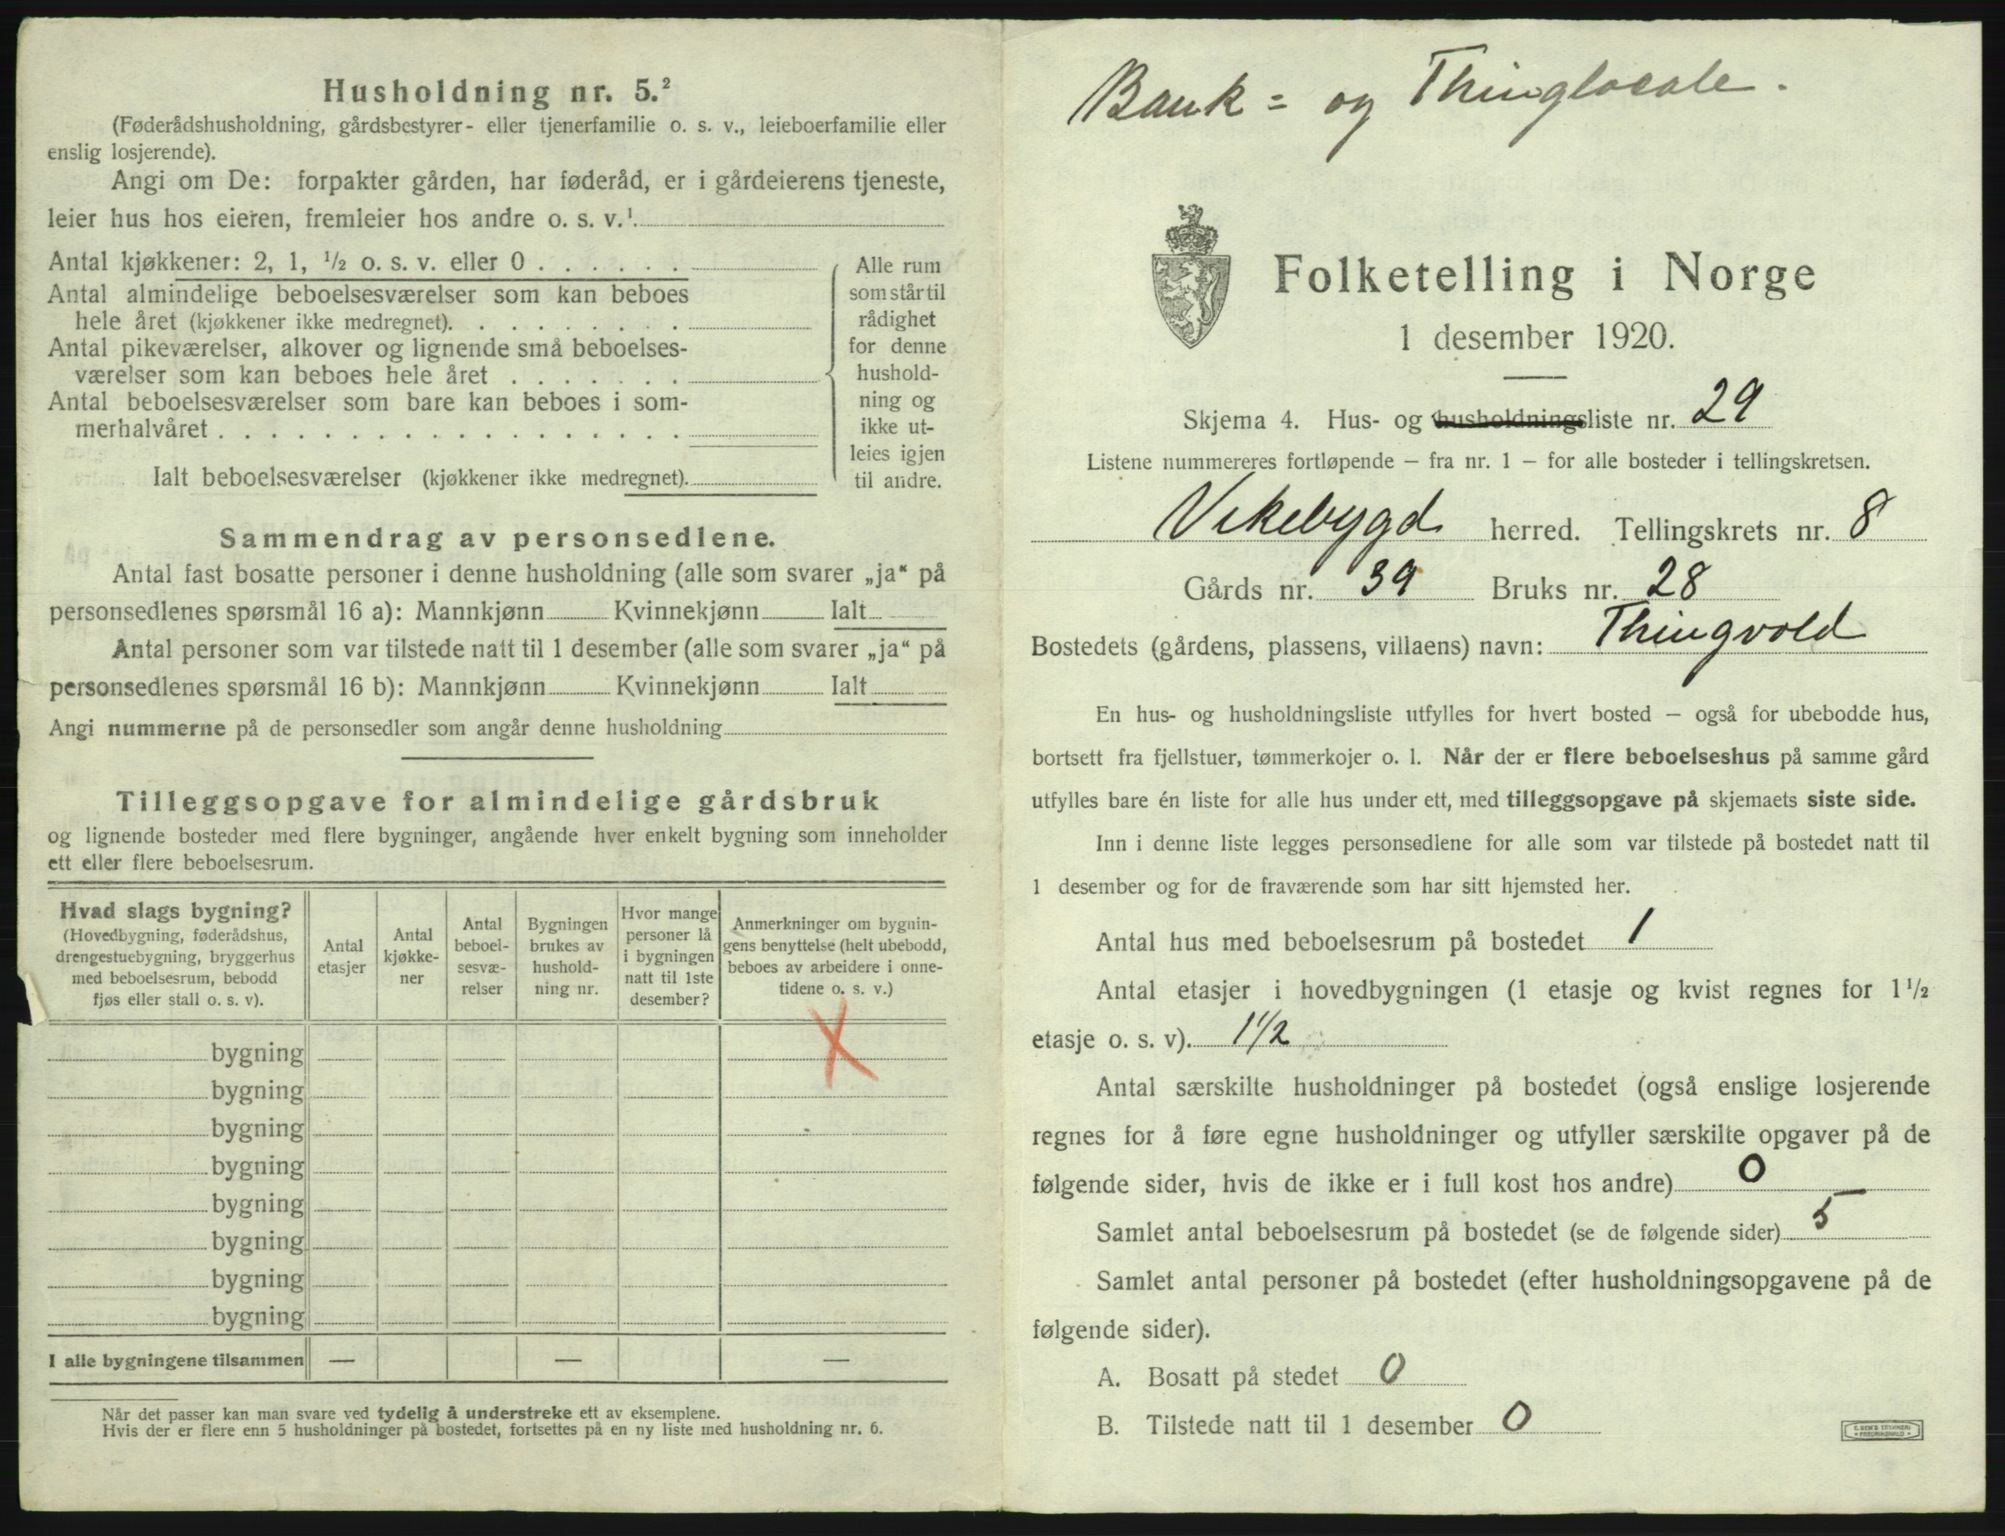 Husholdning nr. 5.²
(Føderådshusholdning, gårdsbestyrer- eller tjenerfamilie o. s. v., leieboerfamilie eller
enslig losjerende).
Angi om De: forpakter gården, har føderåd, er i gårdeierens tjeneste,
leier hus hos eieren, fremleier hos andre o. s. v.¹
Antal kjøkkener: 2, 1, ¹/₂ o. s. v. eller 0 . . . . . .
Antal almindelige beboelsesværelser som kan beboes
hele året (kjøkkener ikke medregnet). . . . . . . . .
Antal pikeværelser, alkover og lignende små beboelses-
værelser som kan beboes hele året . . . . . . .
Antal beboelsesværelser som bare kan beboes i som-
merhalvåret . . . . . . . . . . . . . . . . . .
Ialt beboelsesværelser (kjøkkener ikke medregnet).
Alle rum
som står til
rådighet
for denne
hushold-
ning og
ikke ut-
leies igjen
til andre.
Sammendrag av personsedlene.
Antal fast bosatte personer i denne husholdning (alle som svarer „ja“ på
personsedlenes spørsmål 16 a): Mannkjønn Kvinnekjønn Ialt
Antal personer som var tilstede natt til 1 desember (alle som svarer „ja“ på
personsedlenes spørsmål 16 b): Mannkjønn Kvinnekjønn Ialt
Angi nummerne på de personsedler som angår denne husholdning
Tilleggsopgave for almindelige gårdsbruk
og lignende bosteder med flere bygninger, angående hver enkelt bygning som inneholder
ett eller flere beboelsesrum.
Hvad slags bygning?
(Hovedbygning, føderådshus,
drengestuebygning, bryggerhus
med beboelsesrum, bebodd
fjøs eller stall o. s. v).
Antal
etasjer
Antal
kjøkke-
ner
Antal
beboel-
sesvæ-
relser
Bygningen
brukes av
hushold-
ning nr.
Hvor mange
personer lå
i bygningen
natt til 1ste
desember?
Anmerkninger om bygnin-
gens benyttelse (helt ubebodd,
beboes av arbeidere i onne-
tidene o. s. v.)
bygning X
bygning
bygning
bygning
bygning
bygning
bygning
bygning
I alle bygningene tilsammen — — —
Når det passer kan man svare ved tydelig å understreke ett av eksemplene.
Hvis der er flere enn 5 husholdninger på bostedet, fortsettes på en ny liste med husholdning nr. 6.
Bank = og Thinglocale.
Folketelling i Norge
1 desember 1920.
Skjema 4. Hus- og husholdningsliste nr. 29
Listene nummereres fortløpende – fra nr. 1 – for alle bosteder i tellingskretsen.
Vikebygd herred. Tellingskrets nr. 8
Gårds nr. 39 Bruks nr. 28
Bostedets (gårdens, plassens, villaens) navn: Thingvold
En hus- og husholdningsliste utfylles for hvert bosted – også for ubebodde hus,
bortsett fra fjellstuer, tømmerkojer o. l. Når der er flere beboelseshus på samme gård
utfylles bare én liste for alle hus under ett, med tilleggsopgave på skjemaets siste side.
Inn i denne liste legges personsedlene for alle som var tilstede på bostedet natt til
1 desember og for de fraværende som har sitt hjemsted her.
Antal hus med beboelsesrum på bostedet 1
Antal etasjer i hovedbygningen (1 etasje og kvist regnes for 1¹/₂
etasje o. s. v). 1 1/2
Antal særskilte husholdninger på bostedet (også enslige losjerende
regnes for å føre egne husholdninger og utfyller særskilte opgaver på de
følgende sider, hvis de ikke er i full kost hos andre) 0
Samlet antal beboelsesrum på bostedet (se de følgende sider) 5
Samlet antal personer på bostedet (efter husholdningsopgavene på de
følgende sider).
A. Bosatt på stedet 0
B. Tilstede natt til 1 desember 0